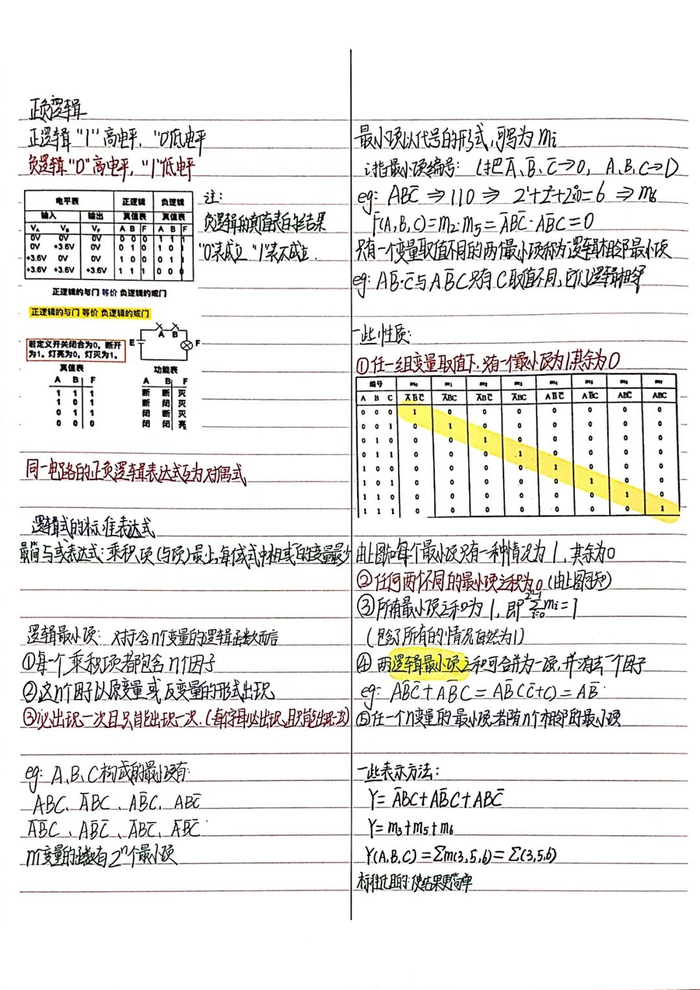 正负逻辑
正逻辑 "1" 高电平, "0"低电平
负逻辑 "0" 高电平, "1"低电平
电平表 正逻辑 负逻辑
输入 输出 真值表 真值表
VA VB VF A B F A B F
0V 0V 0V 0 0 0 1 1 1
0V +3.6V 0V 0 1 0 1 0 1
+3.6V 0V 0V 1 0 0 0 1 1
+3.6V +3.6V +3.6V 1 1 1 0 0 0
注:
负逻辑的真值表的
"0"表成立 "1"表不成立.
正逻辑的与门 等价 负逻辑的或门
正逻辑的与门 等价 负逻辑的或门
若定义开关闭合为0,断开
为1。灯亮为0,灯灭为1。
E A B F
真值表 功能表
A B F A B F
1 1 1 断 断 灭
1 0 1 断 闭 灭
0 1 1 闭 断 灭
0 0 0 闭 闭 亮
同一电路的正负逻辑表达式互为对偶式
逻辑式的标准表达式
最简与或表达式: 乘积项(与项)最少,每个式中相或的变量最少
逻辑最小项: 对于含n个变量的逻辑函数而言
①每个乘积项都包含n个因子
②这n个因子以原变量或反变量的形式出现
③必出现一次且只能出现一次.
eg: A、B、C构成的最小项有:
n个变量的函数有2ⁿ个最小项
最小项以代号的形式,可写为mi
i指最小项编号: (把A̅、B̅、C̅→0, A、B、C→1)
eg: ABC̅ ⇒ 110 ⇒ 2²+2¹+2×0=6 ⇒ m6
F(A,B,C)=m2·m5=A̅BC̅·AB̅C=0
只有一个变量取值不同的两个最小项称为逻辑相邻最小项
eg: AB̅·C̅与AB̅C只有C取值不同,它们逻辑相邻
一些性质:
①任一组变量取值下,只有一个最小项为1,其余为0
编号 m0 m1 m2 m3 m4 m5 m6 m7
A B C A̅B̅C̅ A̅B̅C A̅BC̅ A̅BC AB̅C̅ AB̅C ABC̅ ABC
0 0 0 1 0 0 0 0 0 0 0
0 0 1 0 1 0 0 0 0 0 0
0 1 0 0 0 1 0 0 0 0 0
0 1 1 0 0 0 1 0 0 0 0
1 0 0 0 0 0 0 1 0 0 0
1 0 1 0 0 0 0 0 1 0 0
1 1 0 0 0 0 0 0 0 1 0
1 1 1 0 0 0 0 0 0 0 1
由上图知每个最小项只有一种情况为1,其余为0
②任何两个不同的最小项之积为0
③所有最小项之和为1,即∑mi=1
(包含了所有的情况自然为1)
④两逻辑最小项之和可合并为一项,并消去一个因子
eg: AB̅C̅+AB̅C=AB̅(C̅+C)=AB̅
⑤任一个n变量的最小项,都有n个相邻的最小项
一些表示方法:
Y=A̅BC+AB̅C+ABC̅
Y=m3+m5+m6
Y(A,B,C)=∑m(3,5,6)=∑(3,5,6)